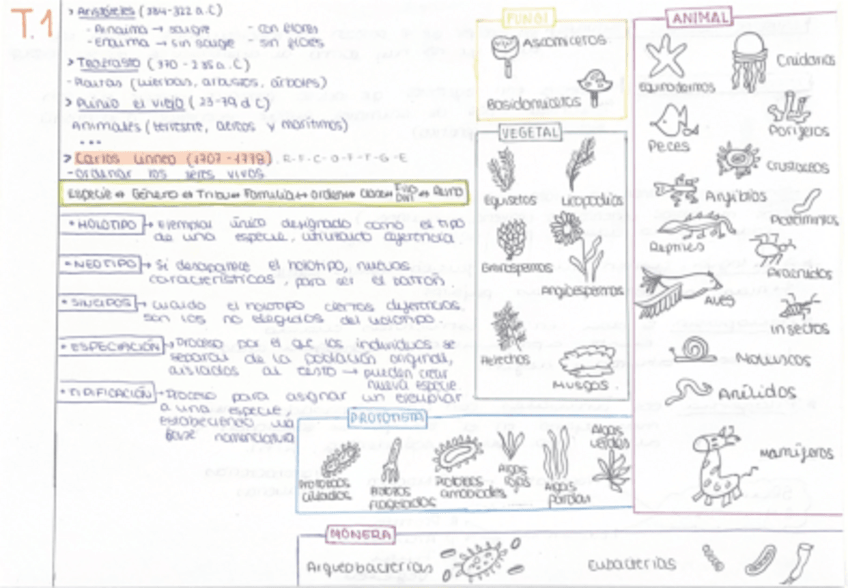 T.1
> Aristóteles (384-322 a.C)
- Anaima → sangre - con flores
- Enaima → sin sangre - sin flores
> Teofrasto (370 - 285 a.C)
- Plantas (hierbas, arbustos, árboles)
> Plinio el viejo (23-79 d C)
Animales (terrestre, aéreos y marítimos)
...
> Carlos Linneo (1707-1778). R-F-C-O-F-T-G-E
- ordenar los seres vivos
Especie ↔ Género ↔ Tribu ↔ Familia ↔ orden ↔ clase ↔ Reino
• HOLOTIPO → Ejemplar único designado como el tipo
de una especie,
• NEOTIPO → Si desaparece el holotipo, nuevas
características, para ser el patrón.
cuando el holotipo ciertas
son los no elegidos del holotipo
• ESPECIACIÓN → Proceso por el que los individuos se
separan de la población original,
aislados al resto → pueden crear
nueva especie
• TIPIFICACIÓN → Proceso para asignar un ejemplar
a una especie,
estableciendo una
base nomenclatura
FUNGI
Ascomicetos
Basidiomicetos
VEGETAL
Equisetos
Licopodios
Gimnospermas
Angiospermas
Helechos
Musgos
PROTOTISTA
Protozoos
ciliados
flagelados
amoboides
Algas
rojas
Algas
pardas
Algas
verdes
ANIMAL
Equinodermos
Cnidarios
Peces
Poríferos
Crustáceos
Anfibios
Reptiles
Arácnidos
Aves
Insectos
Moluscos
Anélidos
Mamíferos
MÓNERA
Arqueobacterias
Eubacterias